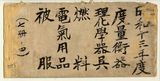 昭和十三年度
度量衡器
理化學器具
燃料
電氣用品
被服